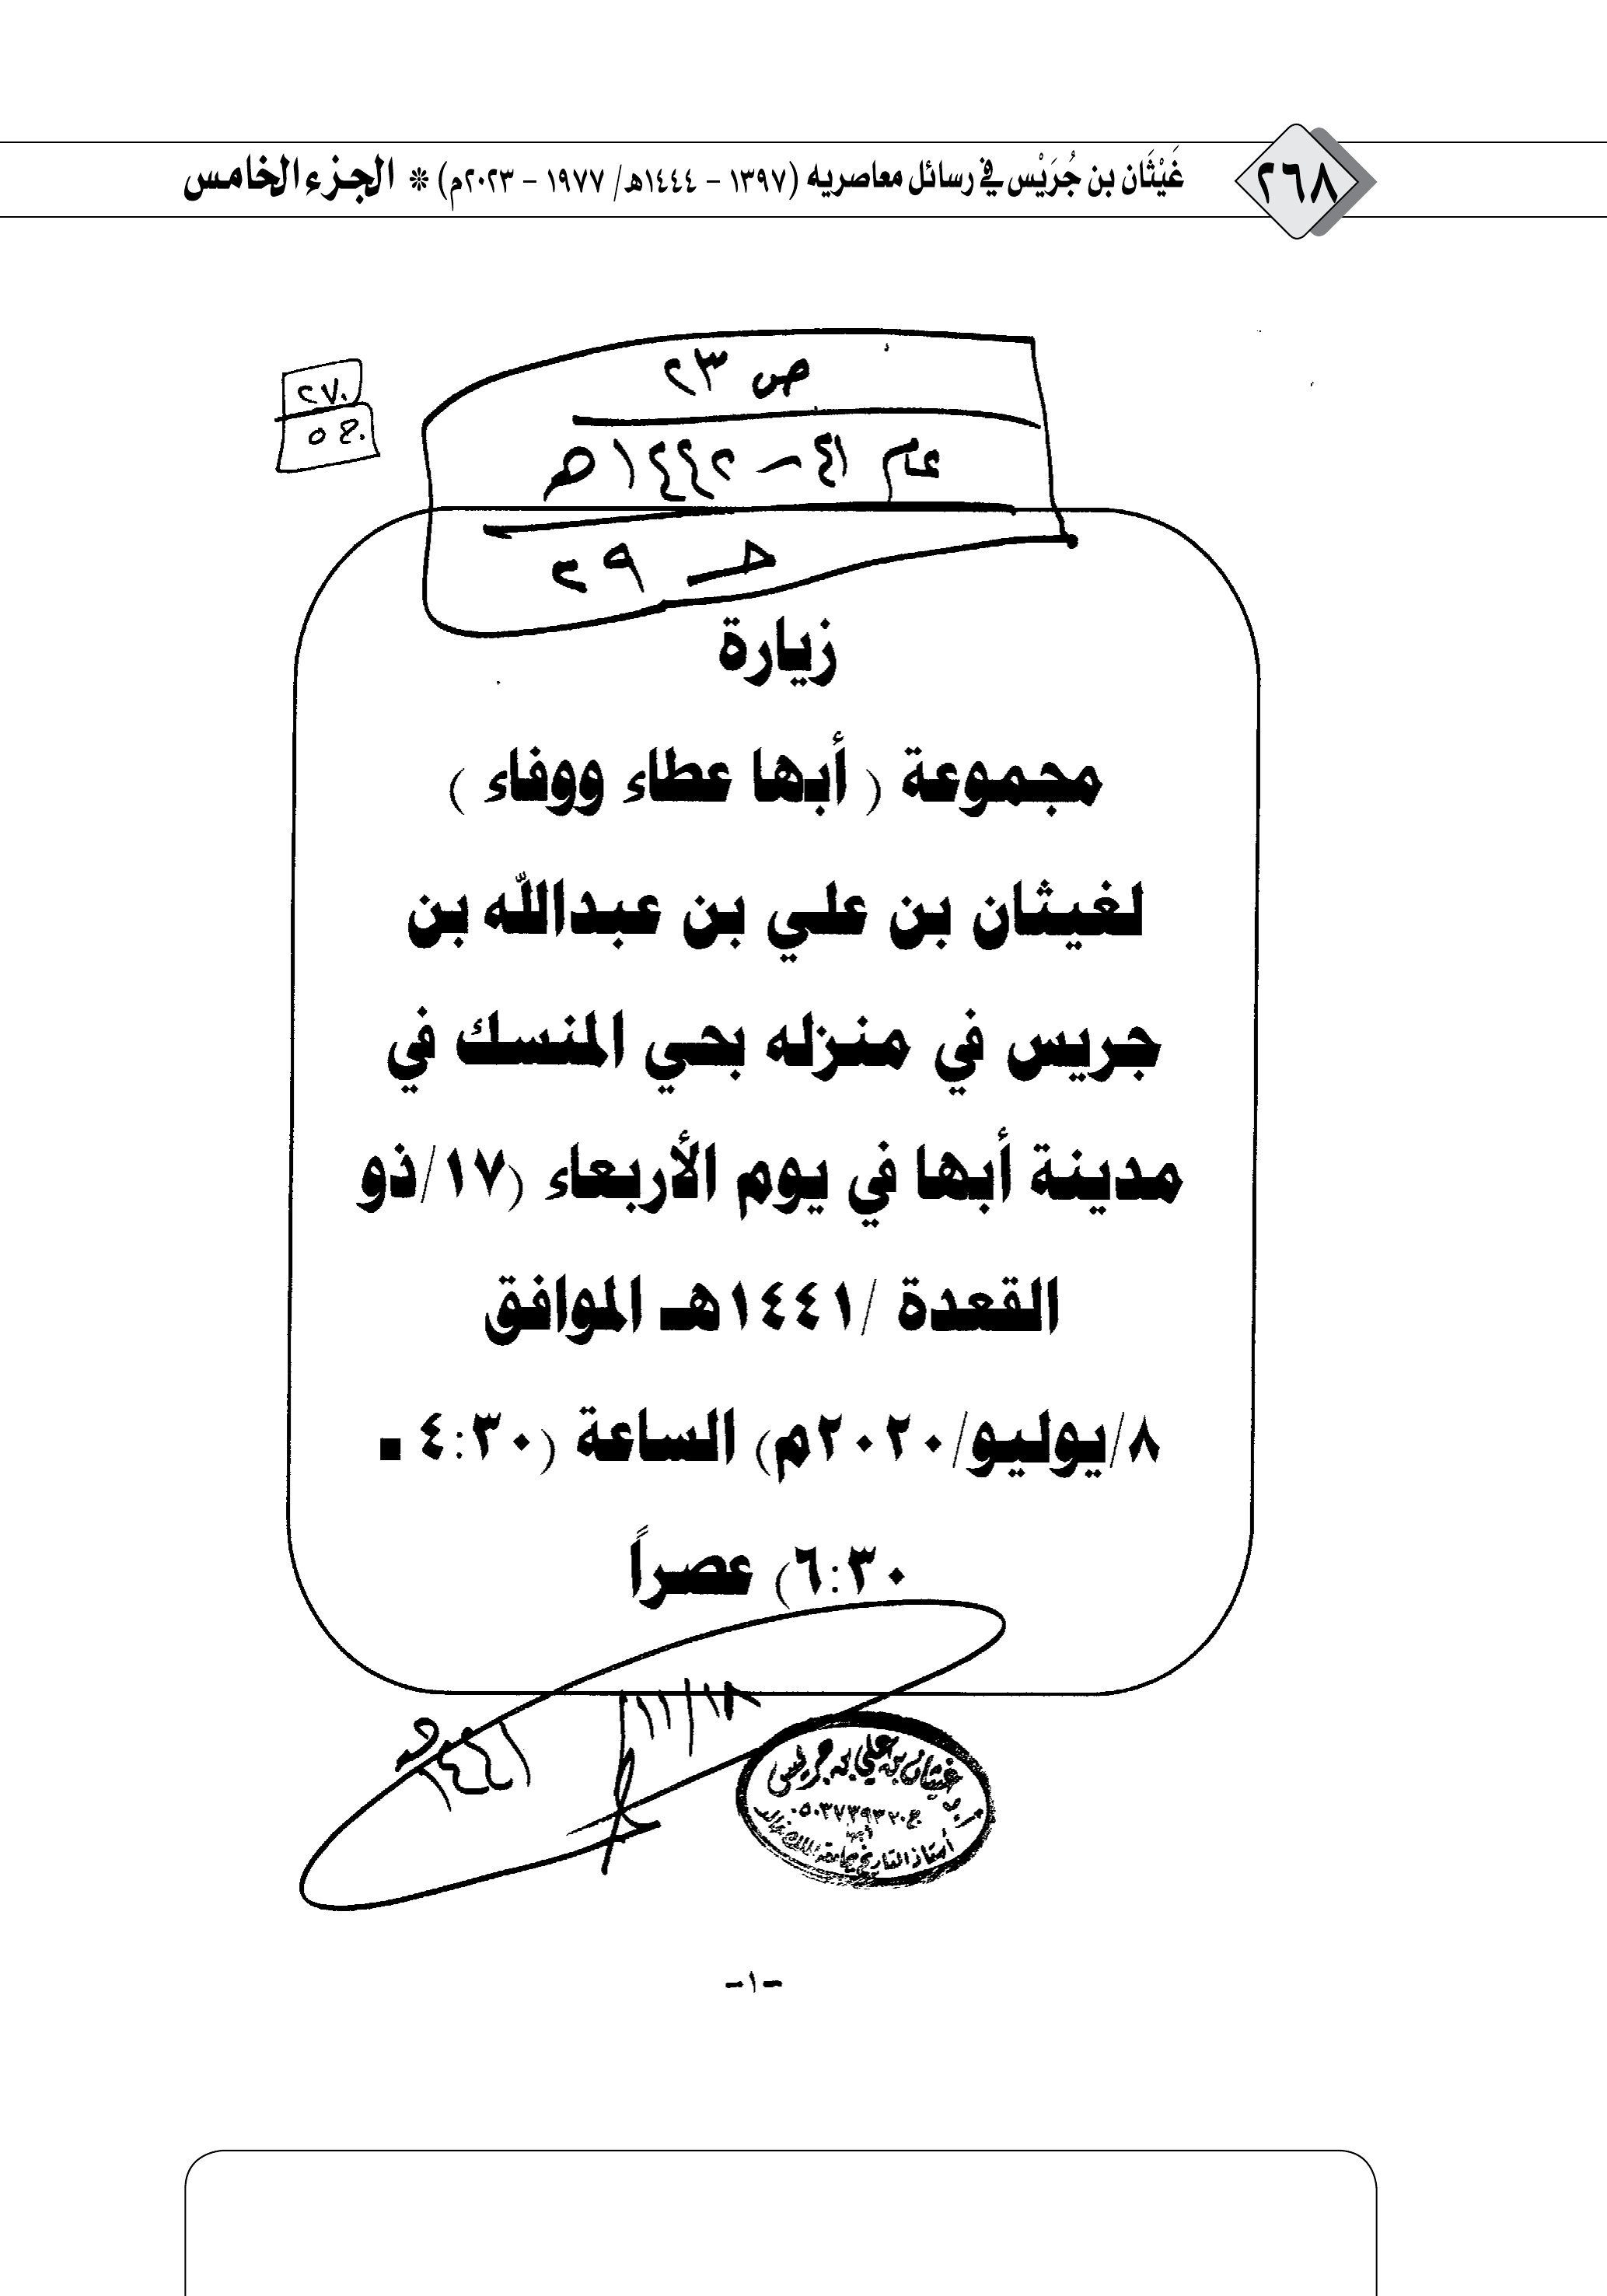 ٢٦٨
غَيْثَان بن جُرَيْس في رسائل معاصريه (١٣٩٧ – ١٤٤٤هـ/ ١٩٧٧ – ٢٠٢٣م) * الجزء الخامس
ص ٢٣
عام ٤١ – ١٤٤٢هـ
حـ ٢٩
٢٧٠
زيارة
مجموعة ( أبها عطاء ووفاء )
لغيثان بن علي بن عبدالله بن
جريس في منزله بحي المنسك في
مدينة أبها في يوم الأربعاء (١٧/ذو
القعدة /١٤٤١هـ الموافق
٨/يوليو/٢٠٢٠م) الساعة (٤:٣٠ -
٦:٣٠) عصراً
١٨/١١/
١٤٤١هـ
غيثان بن علي بن جريس
ج٠٥٠٣٧٣٩٣٢٠
أبها
أستاذ التاريخ بجامعة الملك خالد
-١-